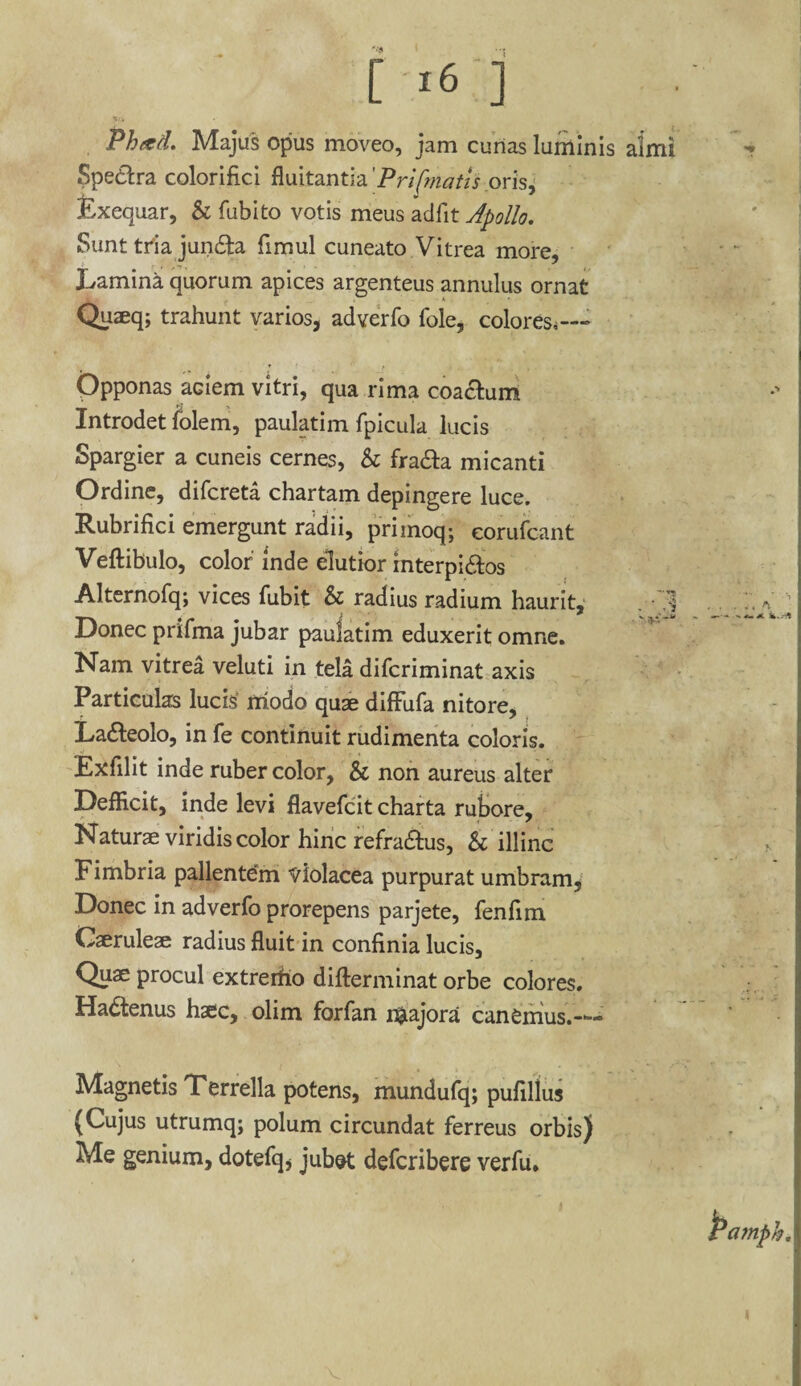 [ 16 ]
Phæd. Majus opus moveo, jam cunas luminis almi
Spectra colorifici fluitantia Priſmatis oris,
Exequar, & ſubito votis meus adſit Apollo.
Sunt tria juncta ſimul cuneato Vitrea more,
Laminà quorum apices argenteus annulus ornat
Quæq; trahunt varios, adverſo ſole, colores.—
Opponas aciem vitri, qua rima coactum
Introdet ſolem, paulatim ſpicula lucis
Spargier a cuneis cernes, & fracta micanti
Ordine, diſcretâ chartam depingere luce.
Rubrifici emergunt radii, primoq; coruſcant
Veſtibulo, color inde elutior interpictos
Alternoſq; vices ſubit & radius radium haurit,
Donec priſma jubar paulatim eduxerit omne.
Nam vitreâ veluti in telâ diſcriminat axis
Particulas lucis modo quæ diffuſa nitore,
Lacteolo, in ſe continuit rudimenta coloris.
Exſilit inde ruber color, & non aureus alter
Defficit, inde levi flaveſcit charta rubore,
Naturæ viridis color hinc refractus, & illinc
Fimbria pallentem violacea purpurat umbram,
Donec in adverſo prorepens parjete, ſenſim
Cæruleæ radius fluit in confinia lucis,
Quæ procul extremo diſterminat orbe colores.
Hactenus hæc, olim forſan majora canemus.—
Magnetis Terrella potens, munduſq; puſillus
(Cujus utrumq; polum circundat ferreus orbis)
Me genium, doteſq, jubet deſcribere verſu.
Pamph.